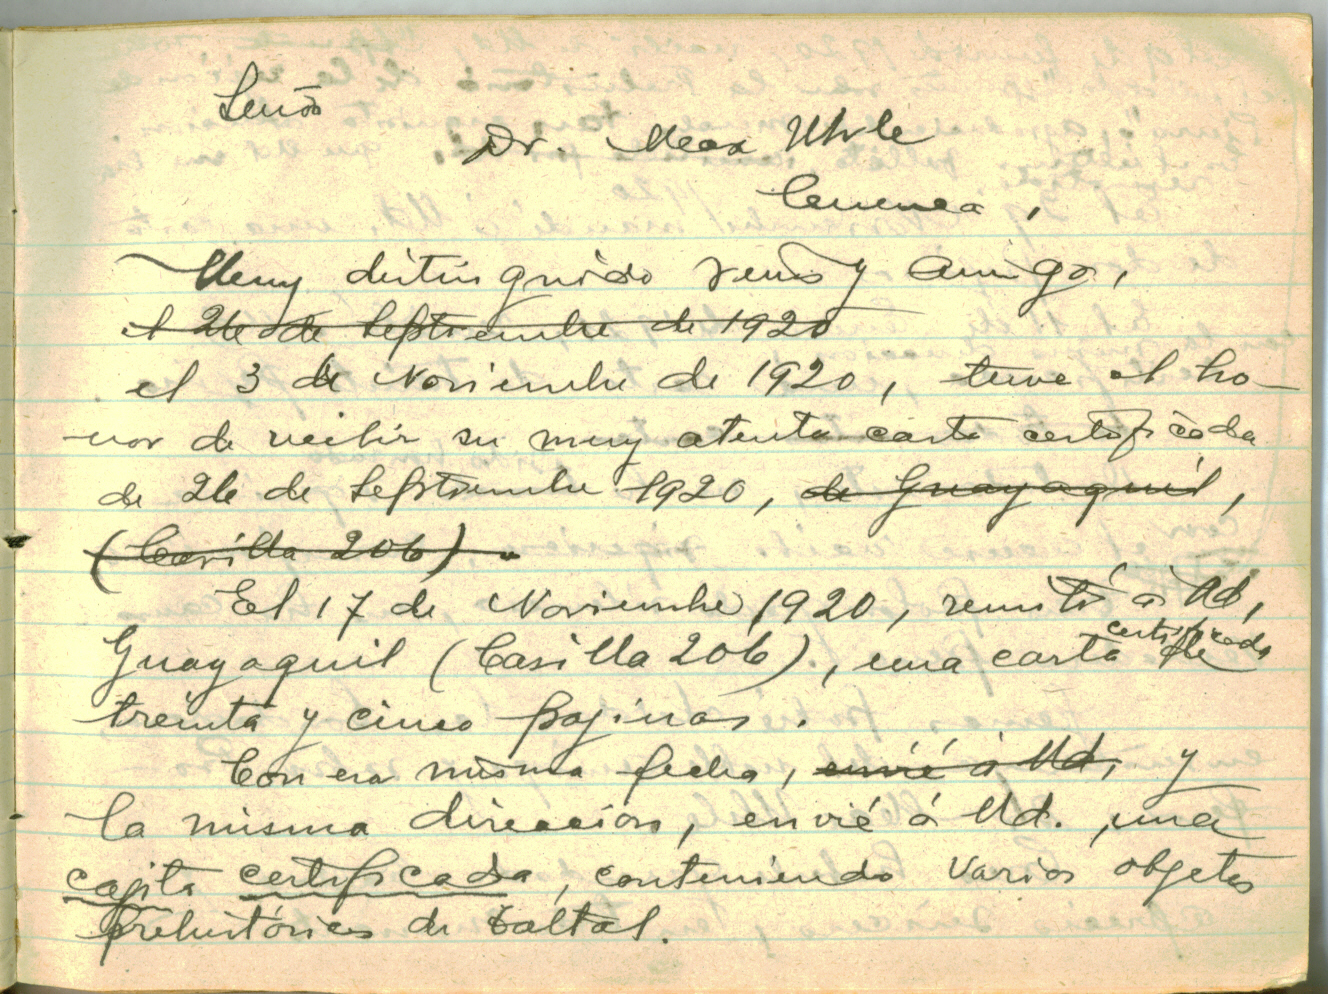 Señor
Dr. Max Uhle
Cuenca,
Muy distinguido señor y amigo,
el 26 de Septiembre de 1920
el 3 de Noviembre de 1920, tuve el ho-
nor de recibir su muy atenta carta certificada
de 26 de Septiembre 1920, de Guayaquil,
(Casilla 206).
El 17 de Noviembre 1920, remití á Ud,
Guayaquil (Casilla 206)., una carta certificada de
treinta y cinco pajinas.
Con esa misma fecha, envié á Ud, y
la misma direccion, envié á Ud. , una
cajita certificada, conteniendo varios objetos
prehistóricos de Taltal.